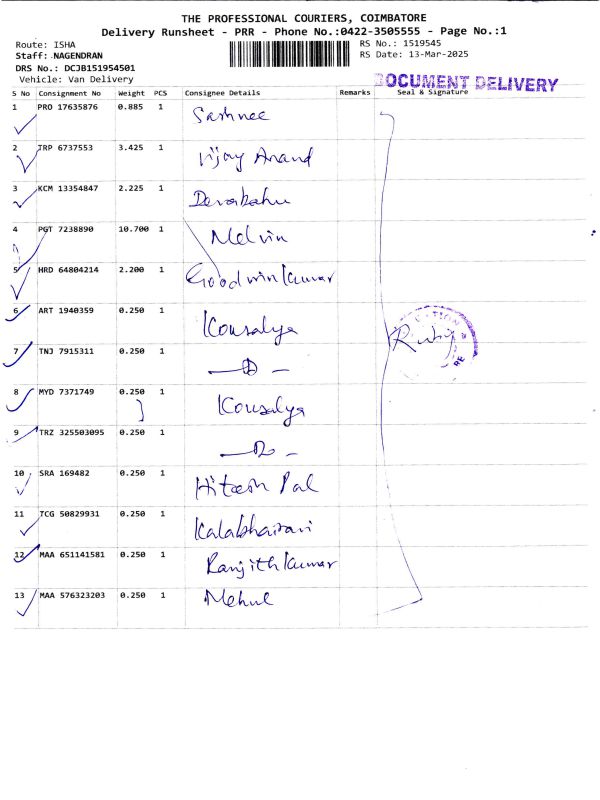 THE PROFESSIONAL COURIERS, COIMBATORE
Delivery Runsheet - PRR - Phone No.:0422-3505555 - Page No.:1
Route: ISHA
RS No.: 1519545
Staff: NAGENDRAN
RS Date: 13-Mar-2025
DRS No.: DCJB151954501
Vehicle: Van Delivery
DOCUMENT DELIVERY
S No Consignment No Weight PCS Consignee Details Remarks Seal & Signature
1 PRO 17635876 0.885 1
2 TRP 6737553 3.425 1 Vijay Anand
3 KCM 13354847 2.225 1
4 PGT 7238890 10.700 1 Melvin
5 HRD 64804214 2.200 1 Goodwin Kumar
6 ART 1940359 0.250 1 Kousalya
7 TNJ 7915311 0.250 1
8 MYD 7371749 0.250 1 Kousalya
9 TRZ 325503095 0.250 1
10 SRA 169482 0.250 1 Hitesh Pal
11 TCG 50829931 0.250 1 Kalabhairavi
12 MAA 651141581 0.250 1 Ranjith Kumar
13 MAA 576323203 0.250 1 Mehul
Ruby